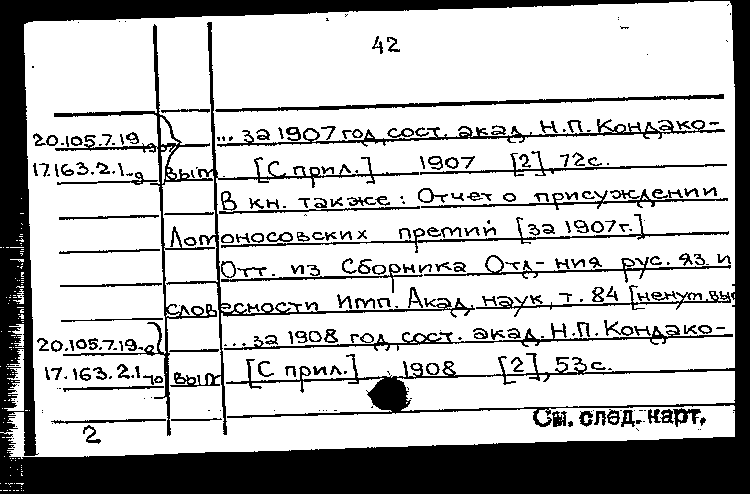 42
20.105.7.19 1907 ... за 1907 год, сост. акад. Н.П. Кондако-
17.163.2.1-9 вым [С прил.] 1907 [2], 72с.
В кн. также: Отчет о присуждении
Ломоносовских премий [за 1907г.]
Отт. из Сборника Отд-ния рус. яз и
словесности Имп. Акад. наук, т. 84 [ненум.
20.105.7.19- ... за 1908 год, сост. акад. Н.П. Кондако-
17.163.2.1-10 вым [С прил.] 1908 [2], 53с.
См. след. карт.
2